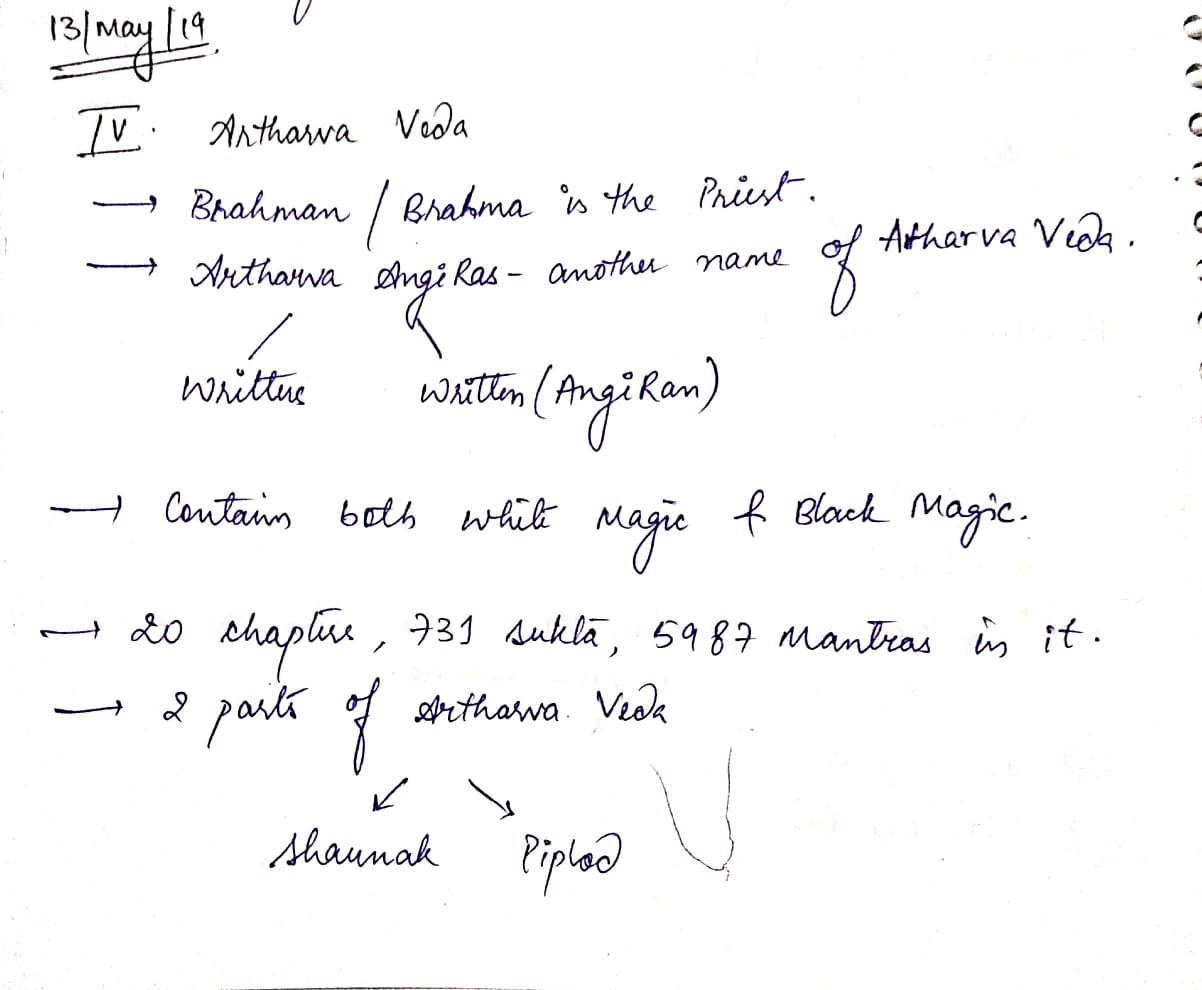 13/May/19
IV. Artharva Veda
→ Brahman / Brahma is the Priest.
→ Artharva AngiRas - another name of Atharva Veda.
Written written (AngiRan)
→ Contains both white Magic & Black Magic.
→ 20 chapters, 731 sukta, 5987 Mantras in it.
→ 2 parts of Artharva Veda
Shaunak Piplad